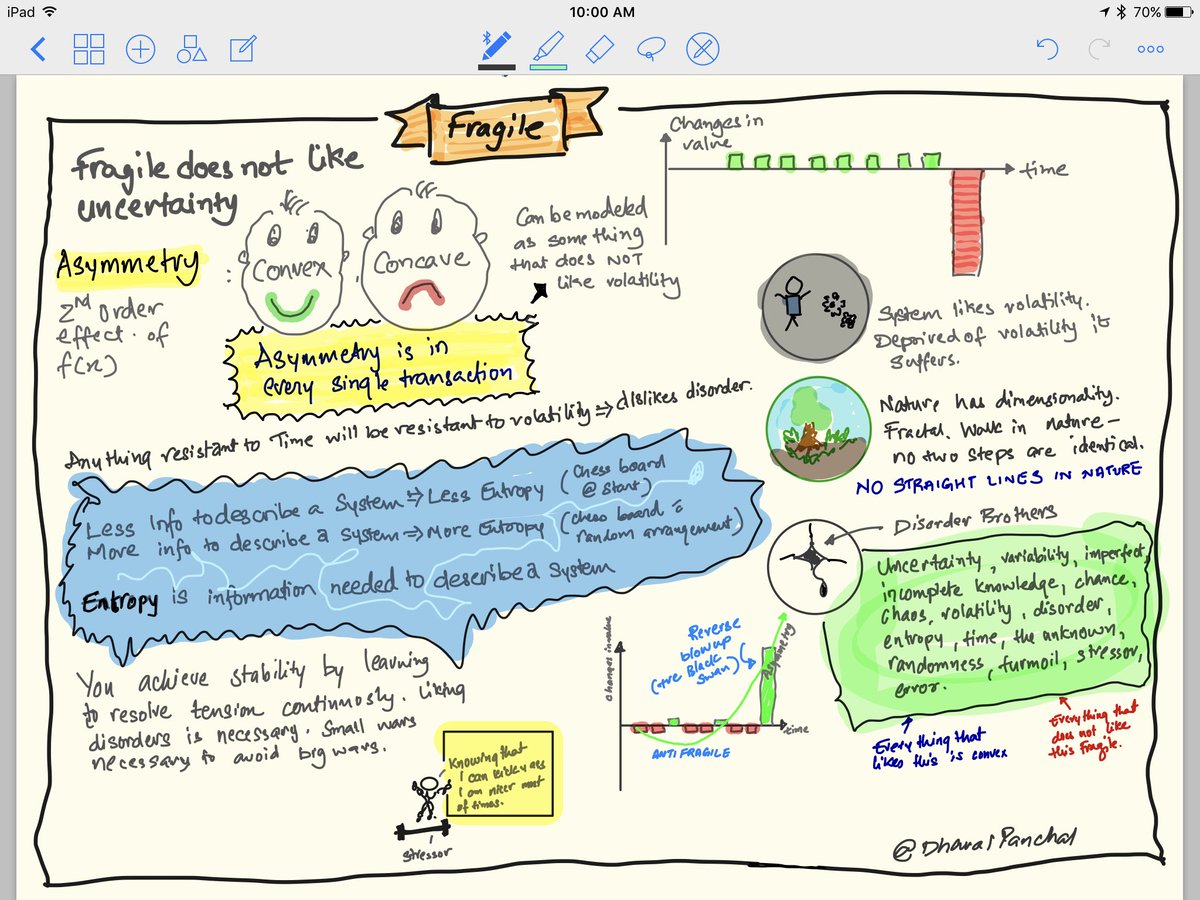 iPad
10:00 AM
70%
Fragile
Fragile does not like
uncertainty
Asymmetry
:
2ND Order
effect of
f(x)
Convex
Concave
Can be modeled
as something
that does NOT
like volatility
Asymmetry is in
every single transaction
Changes in
value
time
System likes volatility.
Deprived of volatility it
suffers.
Nature has dimensionality.
Fractal. Walk in nature –
no two steps are identical.
NO STRAIGHT LINES IN NATURE
Anything resistant to Time will be resistant to volatility ⇒ dislikes disorder.
Less Info to describe a System ⇒ Less Entropy (Chess board @ Start)
More info to describe a system ⇒ More Entropy (chess board random arrangement)
Entropy is information needed to describe a System
Disorder Brothers
Uncertainty, variability, imperfect,
incomplete knowledge, chance,
Chaos, volatility, disorder,
entropy, time, the unknown,
randomness, turmoil, stressor,
error.
Everything that
likes this is convex
Everything that
does not like
this Fragile.
You achieve stability by learning
to resolve tension continuosly. Liking
disorders is necessary. Small wars
necessary to avoid big wars.
Knowing that
I can kick ass
I am nicer most
of times.
Stressor
Changes in value
Reverse
blowup
(+ve Black
Swan)
Asymmetry
time
ANTI FRAGILE
@DhavalPanchal